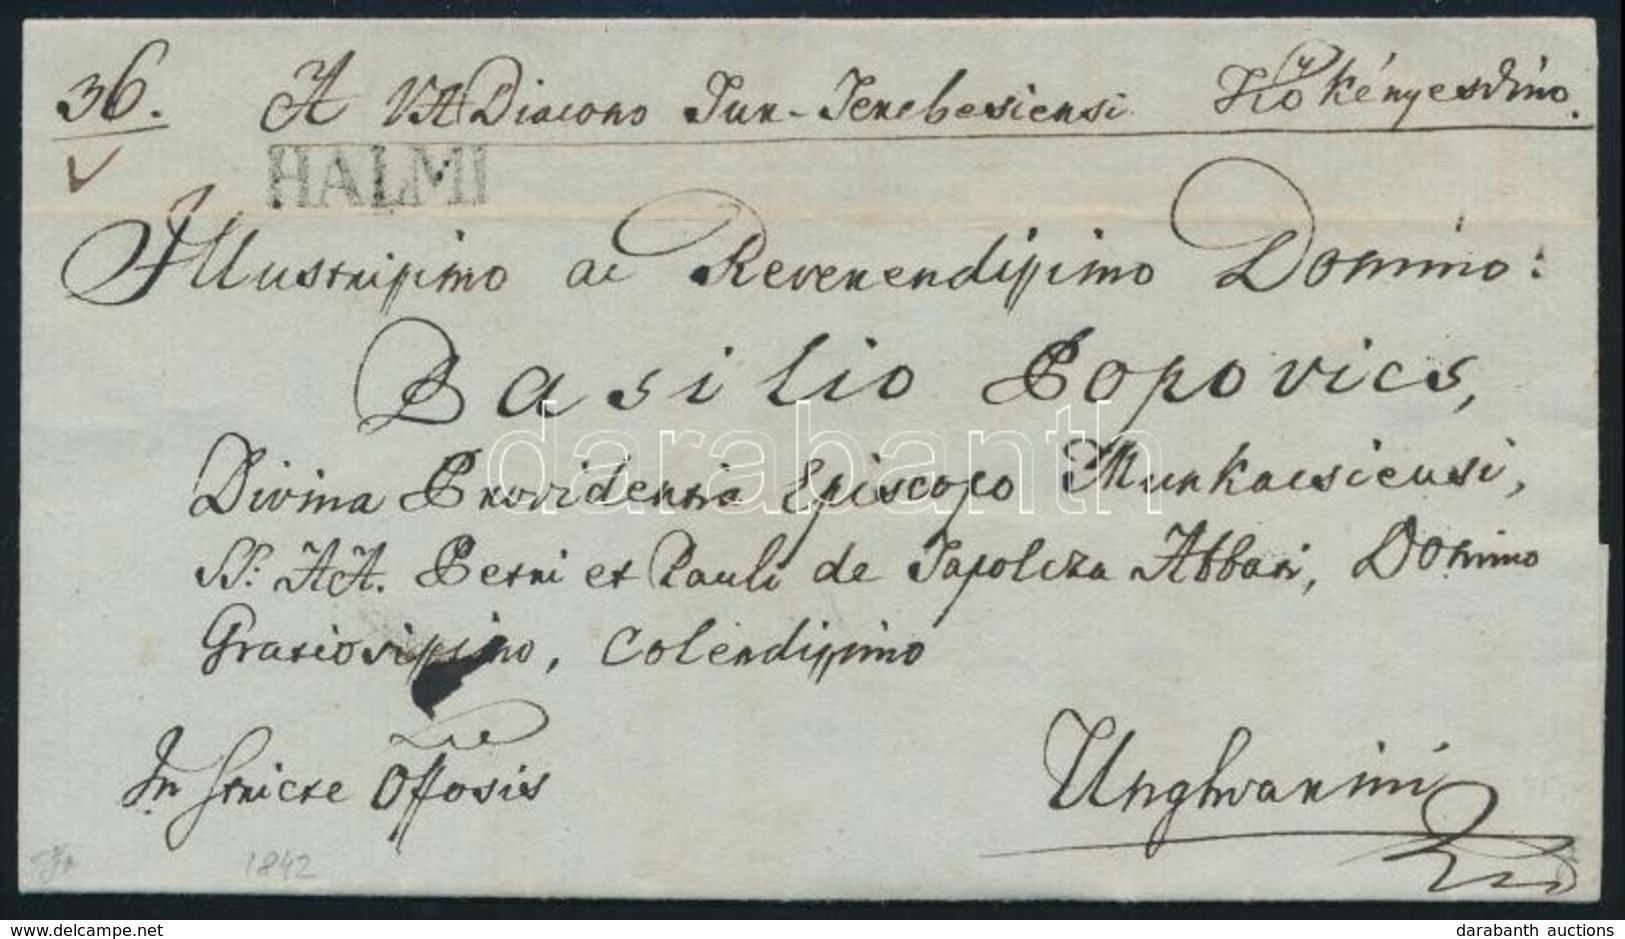 36. A VA Diacono Tur-Terebesiensi Kökényesdino.
HALMI
Illustrissimo ac Reverendissimo Domino:
Basilio Popovics,
Divina Providentia Episcopo Munkacsiensi,
SS: AA. Petri et Pauli de Tapolcza Abbati, Domino
Gratiosissimo, Colendissimo
In stricte Offosis
Unghvarini
1842
darabanth
delcampe.net
darabanth auctions